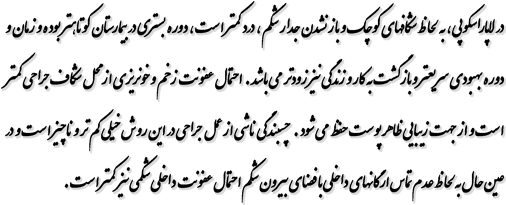 در لاپاراسکوپی، به لحاظ شکافهای کوچک و باز نشدن جدار شکم ، درد کمتر است، دوره بستری در بیمارستان کوتاهتر بوده و زمان و
دوره بهبودی سریعتر و بازگشت به کار و زندگی نیز زودتر می باشد . احتمال عفونت زخم و خونریزی از محل شکاف جراحی کمتر
است و از جهت زیبایی ظاهر پوست حفظ می شود . چسبندگی ناشی از عمل جراحی در این روش خیلی کم تر و ناچیز است و در
عین حال به لحاظ عدم تماس ارگانهای داخلی با فضای بیرون شکم احتمال عفونت داخلی شکمی نیز کمتر است .